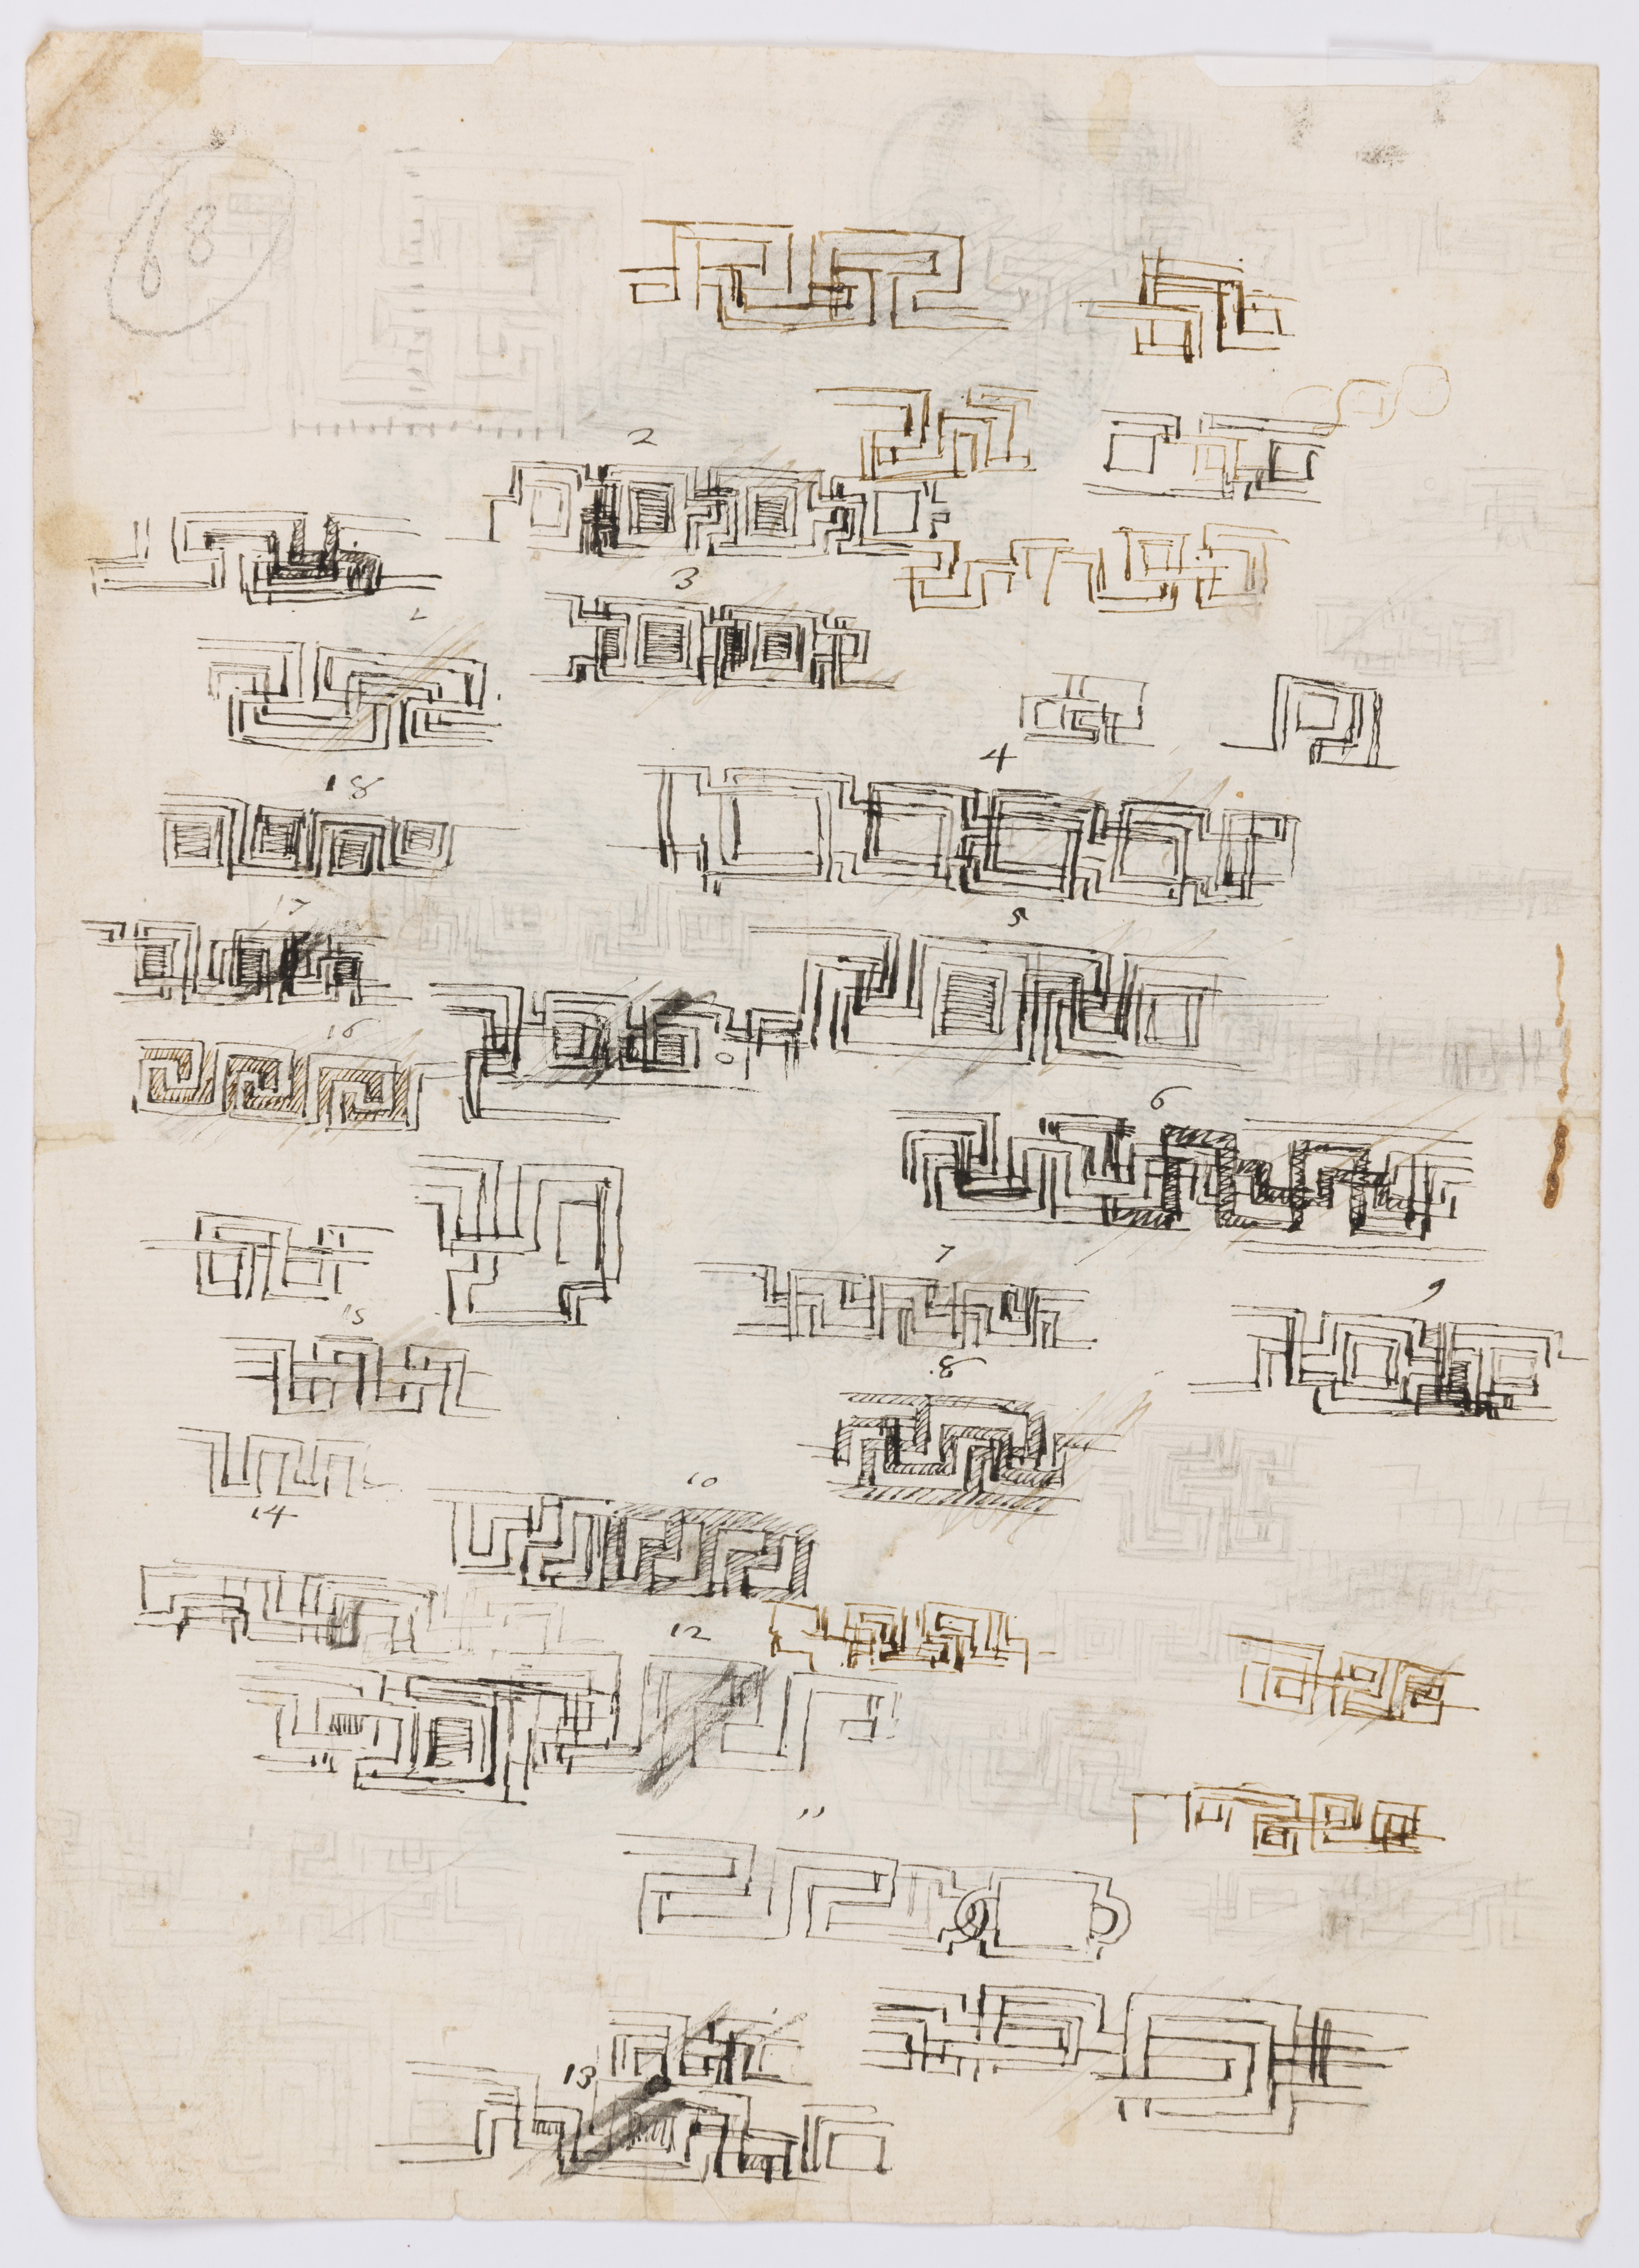 68
2
3
4
18
5
17
16
6
7
15
9
8
10
14
12
11
13